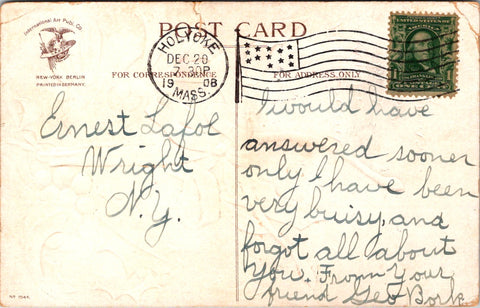 International Art Publ. Co.
NEW-YORK BERLIN
PRINTED IN GERMANY.
POST CARD
HOLYOKE
DEC 20
7-30P
1908
MASS.
FOR CORRESPONDENCE
FOR ADDRESS ONLY
Ernest Lafoe
Wright
N.Y.
I would have
answered sooner
only I have been
very buisy, and
forgot all about
You. From Your
friend Geo Bork.